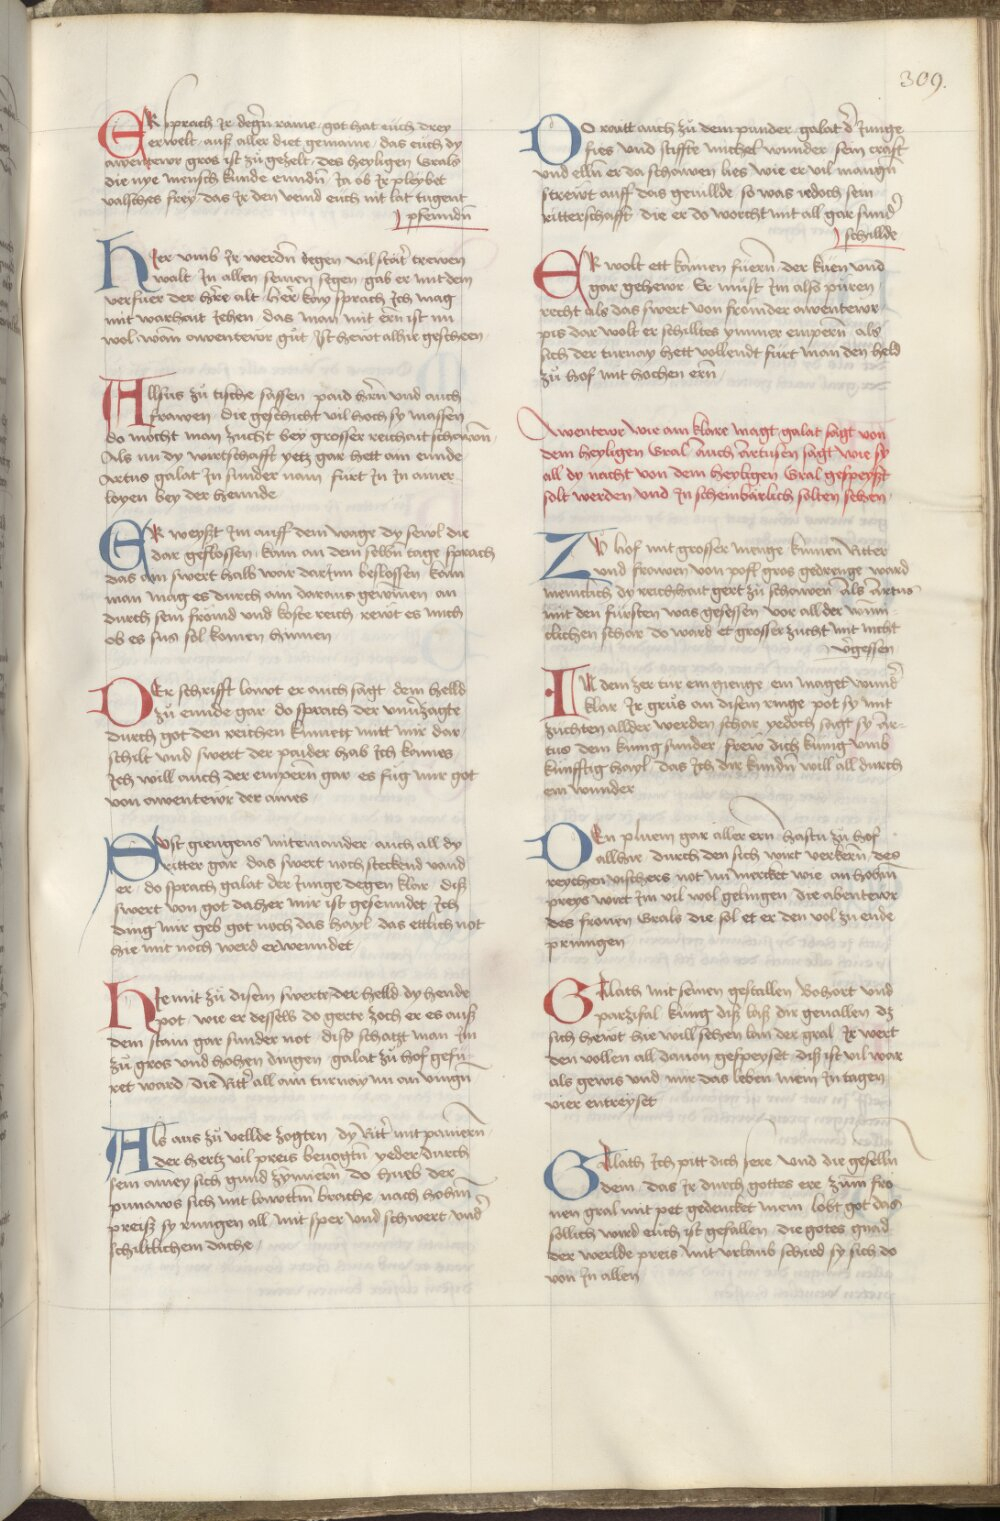 309.
ER sprach Ir degn rame got hat euch drey
erwelt auß aller diet gemaine das euch dy
awentewr gros ist zu gezelt des heyligen Grals
die nye mensch kunde enndn Ja ob Ir pleybet
valsches frey das Ir den veind euch nit lat tugent
pfenndn
Hier umb Ir werdn degen vil stät trewen
walt In allen seinen segen gab er mit dem
verfuer der here alt Her kay sprach Ich mag
mit warhait Jehen das man mit ern ist nu
wol wann awentewr gut Ist hewt alhir gescheen
Allsus zu tische sassen paid hern vnd auch
frawen die geschicht vil hoch sy massen
do mocht man zucht bey grosser reichait schawen
Als nu dy wirtschafft yetz gar hett ain ennde
Artus galat In sunder nam furt In In ainer
loyen bey der hennde
ER weyszt Im auff dem wage dy sewl die
dar geflossen kam an dem selbn tage sprach
das ain swert halb war darInn beslossen kain
man mag es durch ain daraus gewinnen an
durch sein fromd vnd koste reich rewt es mich
ob es sus sol komen hinnen
Der schrifft lawt er auch sagt dem helld
zu ennde gar do sprach der vnuerzagte
durch got den reichen kunnett mitt mir dar
schilt vnd swert der paider hab Ich kaines
Ich will auch der empern gar es fug mir got
von awentewr der aines
Sust giengens miteinander auch all dy
ritter gar das swert noch steckend vand
er do sprach galat der Junge degen klar diß
swert von got daher mir ist gesenndet Ich
ding mir geb got noch das hayl das ettlich not
hie mit noch werd erwenndet
Hiemit zu disem swerte der helld dy hende
pot wie er desselb do gerte zoch er es auß
dem stain gar sunder not diss schatzt man Im
zu gros vnd hohen dingen galat zu hof gefu
ret ward die Ritter all ain turnay nu an viengn
Als aus zu vellde zogten dy Ritter mit panern
der hertz vil preis bevogtn yeder durch
sein amey sich gund zymiern do hueb der
punaws sich mit lawttem brache nach hohm
preisz sy rungen all mit sper vnd schwert vnd
schiltlichem dache
Do raitt auch zu dem punder galat der Junge
fies vnd stiffte michel wunder sein craft
vnd elln er da schawen lies wie er vil mangn
strewt auff das gevillde so was iedoch sein
ritterschafft die er do worcht mit all gar sunder
schillde
ER wolt ett kainen fuern der kuen vnd
gar gehewr Er muest Im also puren
recht als das swert von fromder awentewr
pis dar wolt er schilltes ymmer empern als
sich der turnay hett vollendt furt man den held
zu hof mit hochen ern
Awentewr wie ain klare magt galat sagt von
dem heyligen Gral Auch Artusen sagt wie sy
all dy nacht von dem heyligen Gral gespeyszt
solt werden vnd In scheinbärlich solten sehen
Zu hof mit grosser menge kumen Ritter
vnd frawen von pofl gros gedrenge ward
menicklich dy reichhait gert zu schawen Als Artus
mit den fursten was gesessen vor all der wunn
clichen schar do ward et grosser zucht mit nicht
vergessen
IN dem zer tur ein gienge ein maget wunder
klar Ir grus an disem ringe pot sy mit
zuchten allder werden schar yedoch sagt sy Ar-
tus dem kunig sunder frew dich kunig vmb
kunfftig hayl das Ich dir kundn will all durch
ein wunder
Den pluem gar aller ern hastu zu hof
allhar durch den sich wirt verkern des
reychen vischers not nu mercket wie an hohm
preys wirt Im vil wol gelingen die abentewr
des fronen Grals die sol et er den vol zu ende
pringen
Galath mit seinen gesallen Bohort vnd
parzifal kunig diß laß dir gevallen dz
sich hewt hie will sehen lan der gral Ir wert
den vollen all dauon gespeyset diß ist vil war
als gewis vnd mir das leben mein In tagen
vier entreyset
Galath Ich pitt dich sere vnd die geselln
dein das Ir durch gottes ere zum fro
nen gral mit pet gedencket mein lobt got das
sollich wird euch ist gefallen die gotes gnad
der werlde preis mit vrlaub schied sy sich do
von In allen